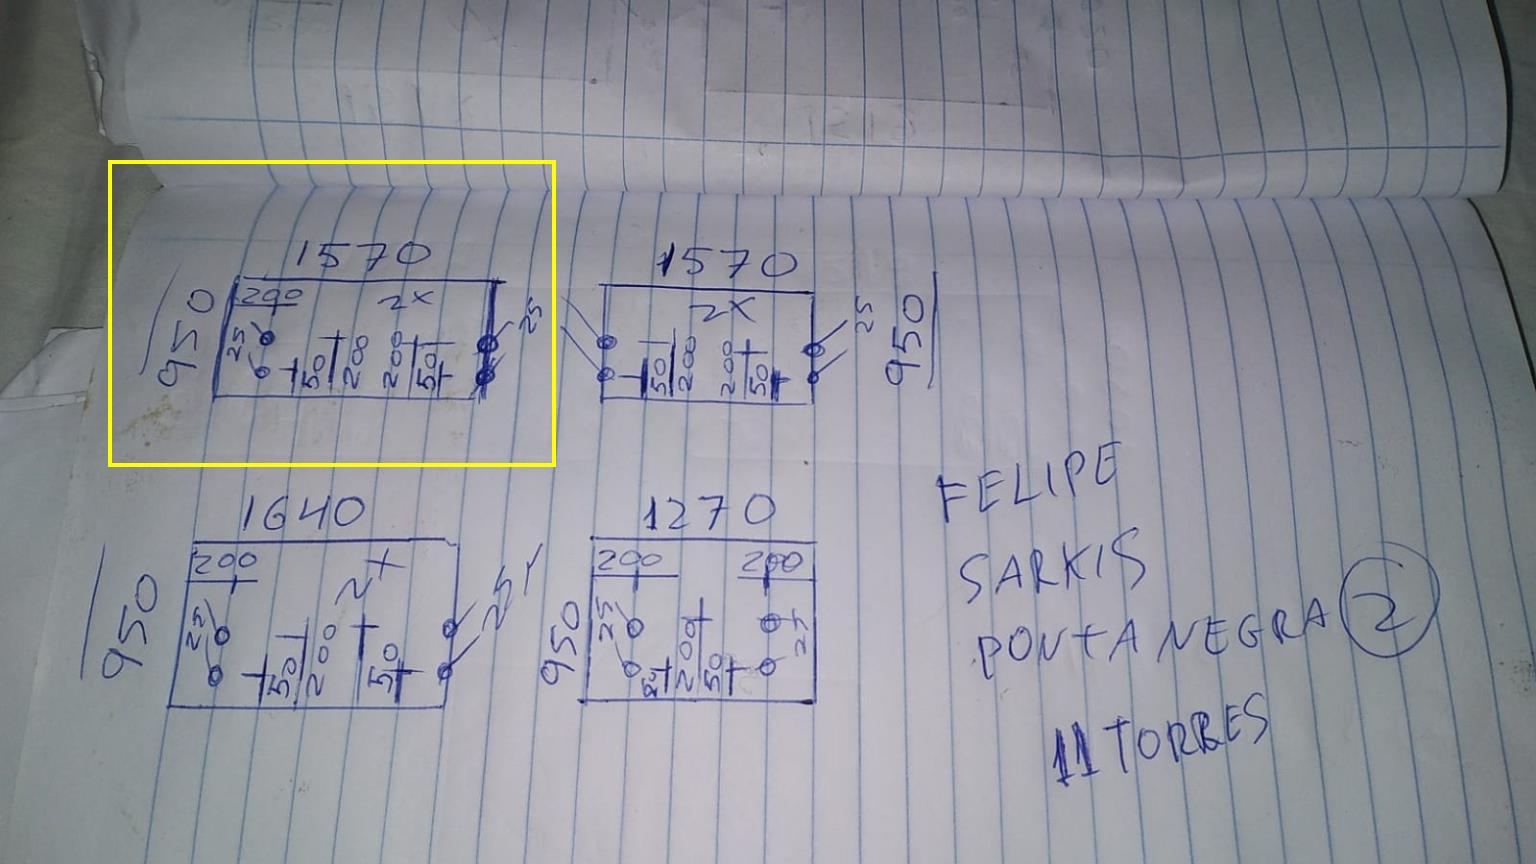 1570
950
200
2X
25
50
200
200
50
25
1570
2X
50
200
200
50
25
950
1640
950
200
2X
25
50
200
50
25
1270
950
200
200
25
200
50
25
FELIPE
SARKIS
PONTA NEGRA 2
11 TORRES